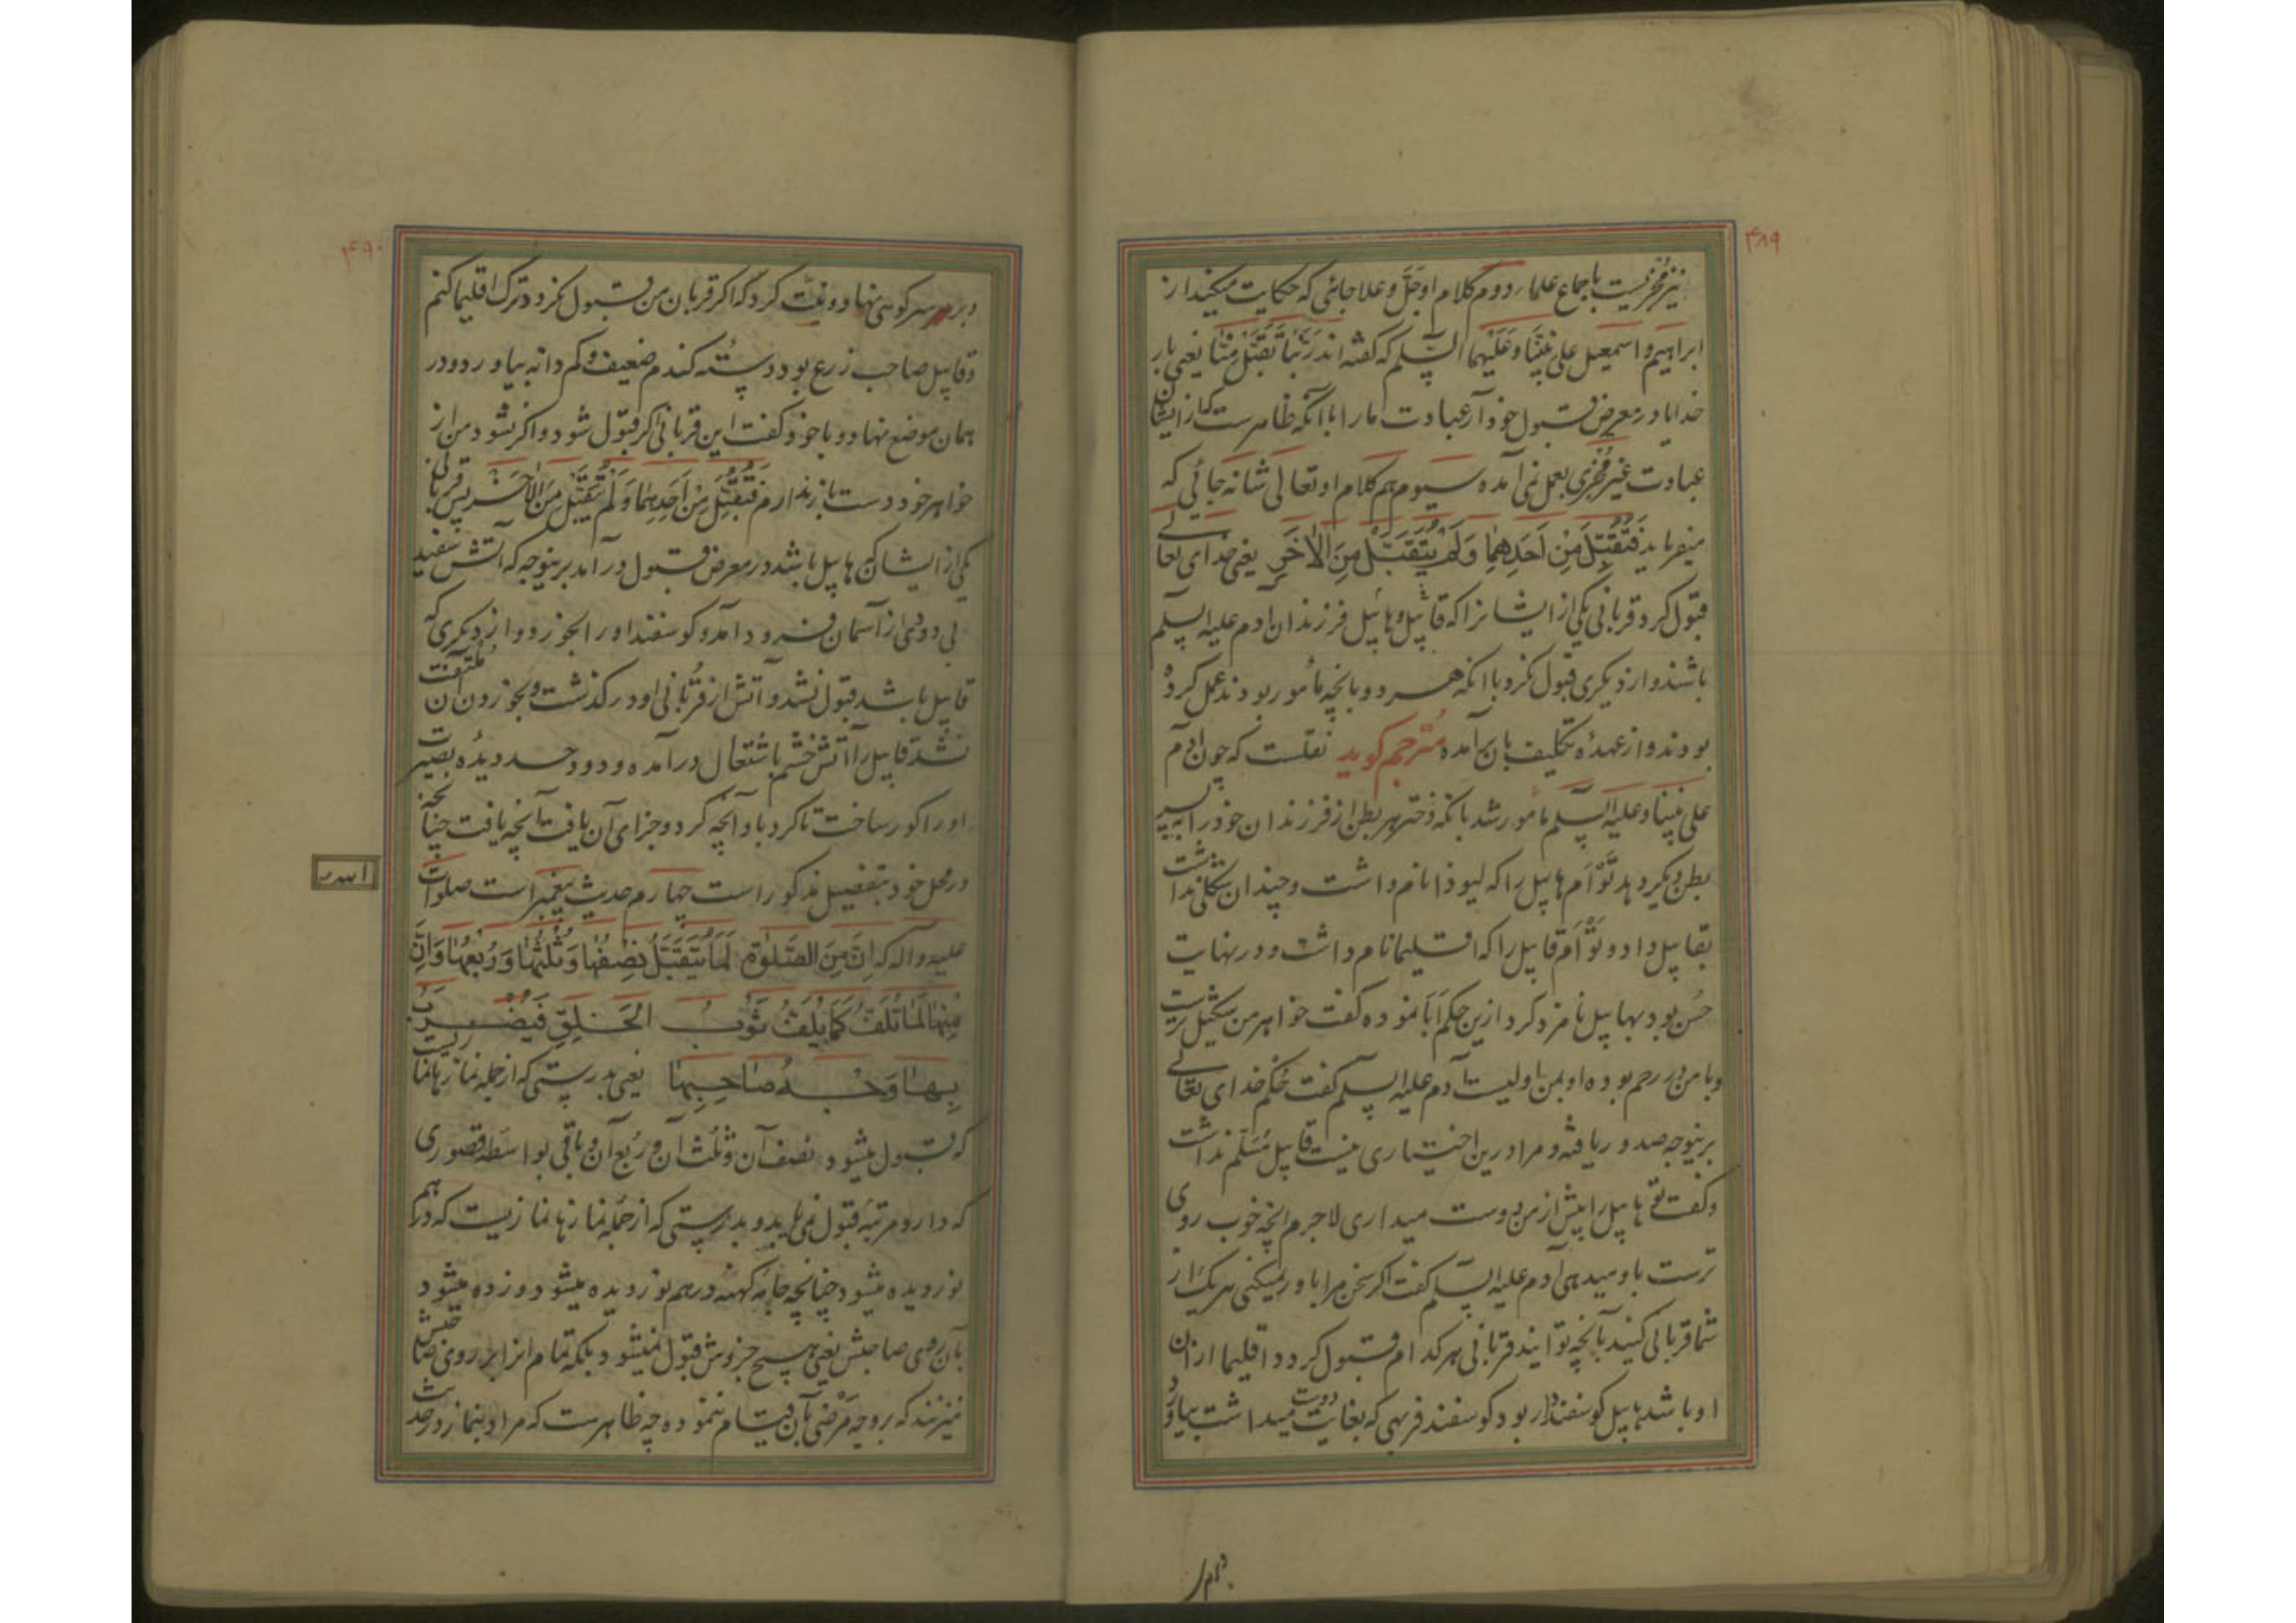 ۴۸۹
نیز مجزیست باجماع علما، دوم کلام او جلّ و علا جائی که حکایت میکند از
ابراهیم و اسمعیل علی نبیّنا و علیهما السلم که گفته اند رَبَّنا تَقَبَّلْ مِنّا یعنی بار
خدایا در معرض قبول خود آر عبادت ما را با آنکه ظاهرست که از ایشان
عبادت غیر مجزی بعمل نمی آمده سیوم هم کلام او تعالی شانه جائی که
میفرماید فَتُقُبِّلَ مِنْ اَحَدِهِما وَلَمْ یُتَقَبَّلْ مِنَ الْاٰخَرِ یعنی خدای تعالی
قبول کرد قربانی یکی از ایشانرا که قابیل و هابیل فرزندان آدم علیه السلم
باشند و از دیگری قبول نکرد با آنکه هر دو بآنچه مأمور بودند عمل کرده
بودند و از عهدهٔ تکلیف بآن برآمده مترجم گوید نقلست که چون آدم
علی نبینا و علیه السلم مامور شد بآنکه دختر هر بطن از فرزندان خود را به پسر
بطن دیگر دهد توأم هابیل را که لیوذا نام داشت و چندان شکلی نداشت
بقابیل داد و توأم قابیل را که اقلیما نام داشت و در نهایت
حسن بود بهابیل نامزد کرد ازین حکم ابا نموده گفت خواهر من شکیل ترست
و با من در رحم بوده او بمن اولیست آدم علیه السلم گفت حکم خدای تعالی
برینوجه صدور یافته و مرا درین اختیاری نیست قابیل مسلم نداشت
و گفت تو هابیل را بیش از من دوست میداری لاجرم آنچه خوب روی
ترست باو میدهی آدم علیه السلم گفت اگر سخن مرا باور نمیکنی هر یک از
شما قربانی کنید بآنچه توانید قربانی هر کدام قبول گردد اقلیما از آن
او باشد هابیل گوسفنددار بود گوسفند فربهی که بغایت دوست میداشت بیاورد
۴۹۰
و بر سر کوهی نهاد و نیت کرد که اگر قربان من قبول نکردد ترک اقلیما کنم
و قابیل صاحب زرع بود دسته گندم ضعیف و کم دانه بیاورد و در
همان موضع نهاد و با خود گفت این قربانی اگر قبول شود و اگر نشود من از
خواهر خود دست باز ندارم فَتُقُبِّلَ مِنْ اَحَدِهِما وَلَمْ یُتَقَبَّلْ مِنَ الْاٰخَرِ پس قربانی
یکی از ایشان که هابیل باشد در معرض قبول درآمد برینوجه که آتش سفید
بی دودی از آسمان فرود آمد و گوسفند او را بخورد و از دیگری که
قابیل باشد قبول نشد و آتش از قربانی او درگذشت و بخوردن آن ملتفت
نشد قابیل را آتش خشم باشتعال درآمده و دود حسد دیدهٔ بصیرت
او را کور ساخت تا کرد باو آنچه کرد و جزای آن یافت آنچه یافت چنانچه
در محل خود بتفصیل مذکور است چهارم حدیث پیغمبر است صلوات
الله
علیه و اله که اِنَّ مِنَ الصَّلوةِ لَما یُتَقَبَّلُ نِصْفُها وَ ثُلْثُها وَ رُبْعُها وَ اِنَّ
مِنْها لَما تُلَفُّ کَما یُلَفُّ ثَوْبُ الْخَلِقِ فَیُضْرَبُ
بِها وَجْهُ صاحِبِها یعنی بدرستی که از جمله نمازها نمازیست
که قبول میشود نصف آن و ثلث آن و ربع آن و باقی بواسطه قصوری
که دارد مرتبهٔ قبول نمی یابد و بدرستی که از جمله نمازها نمازیست که در هم
نوردیده میشود چنانچه جامه کهنه در هم نوردیده میشود و زده میشود
بآن روی صاحبش یعنی هیچ جزوش قبول نمیشود بلکه تمام آنرا بر روی صاحبش
میزنند که بر وجه مرضی بآن قیام ننموده چه ظاهرست که مراد بنماز در حدیث